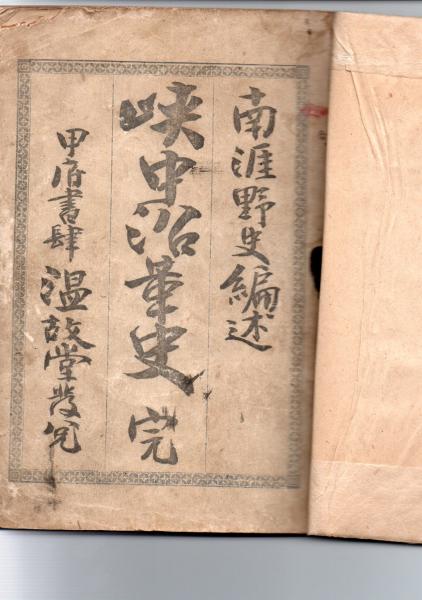 南涯野史編述
峡中沿革史 完
甲府書肆 温故堂發兌